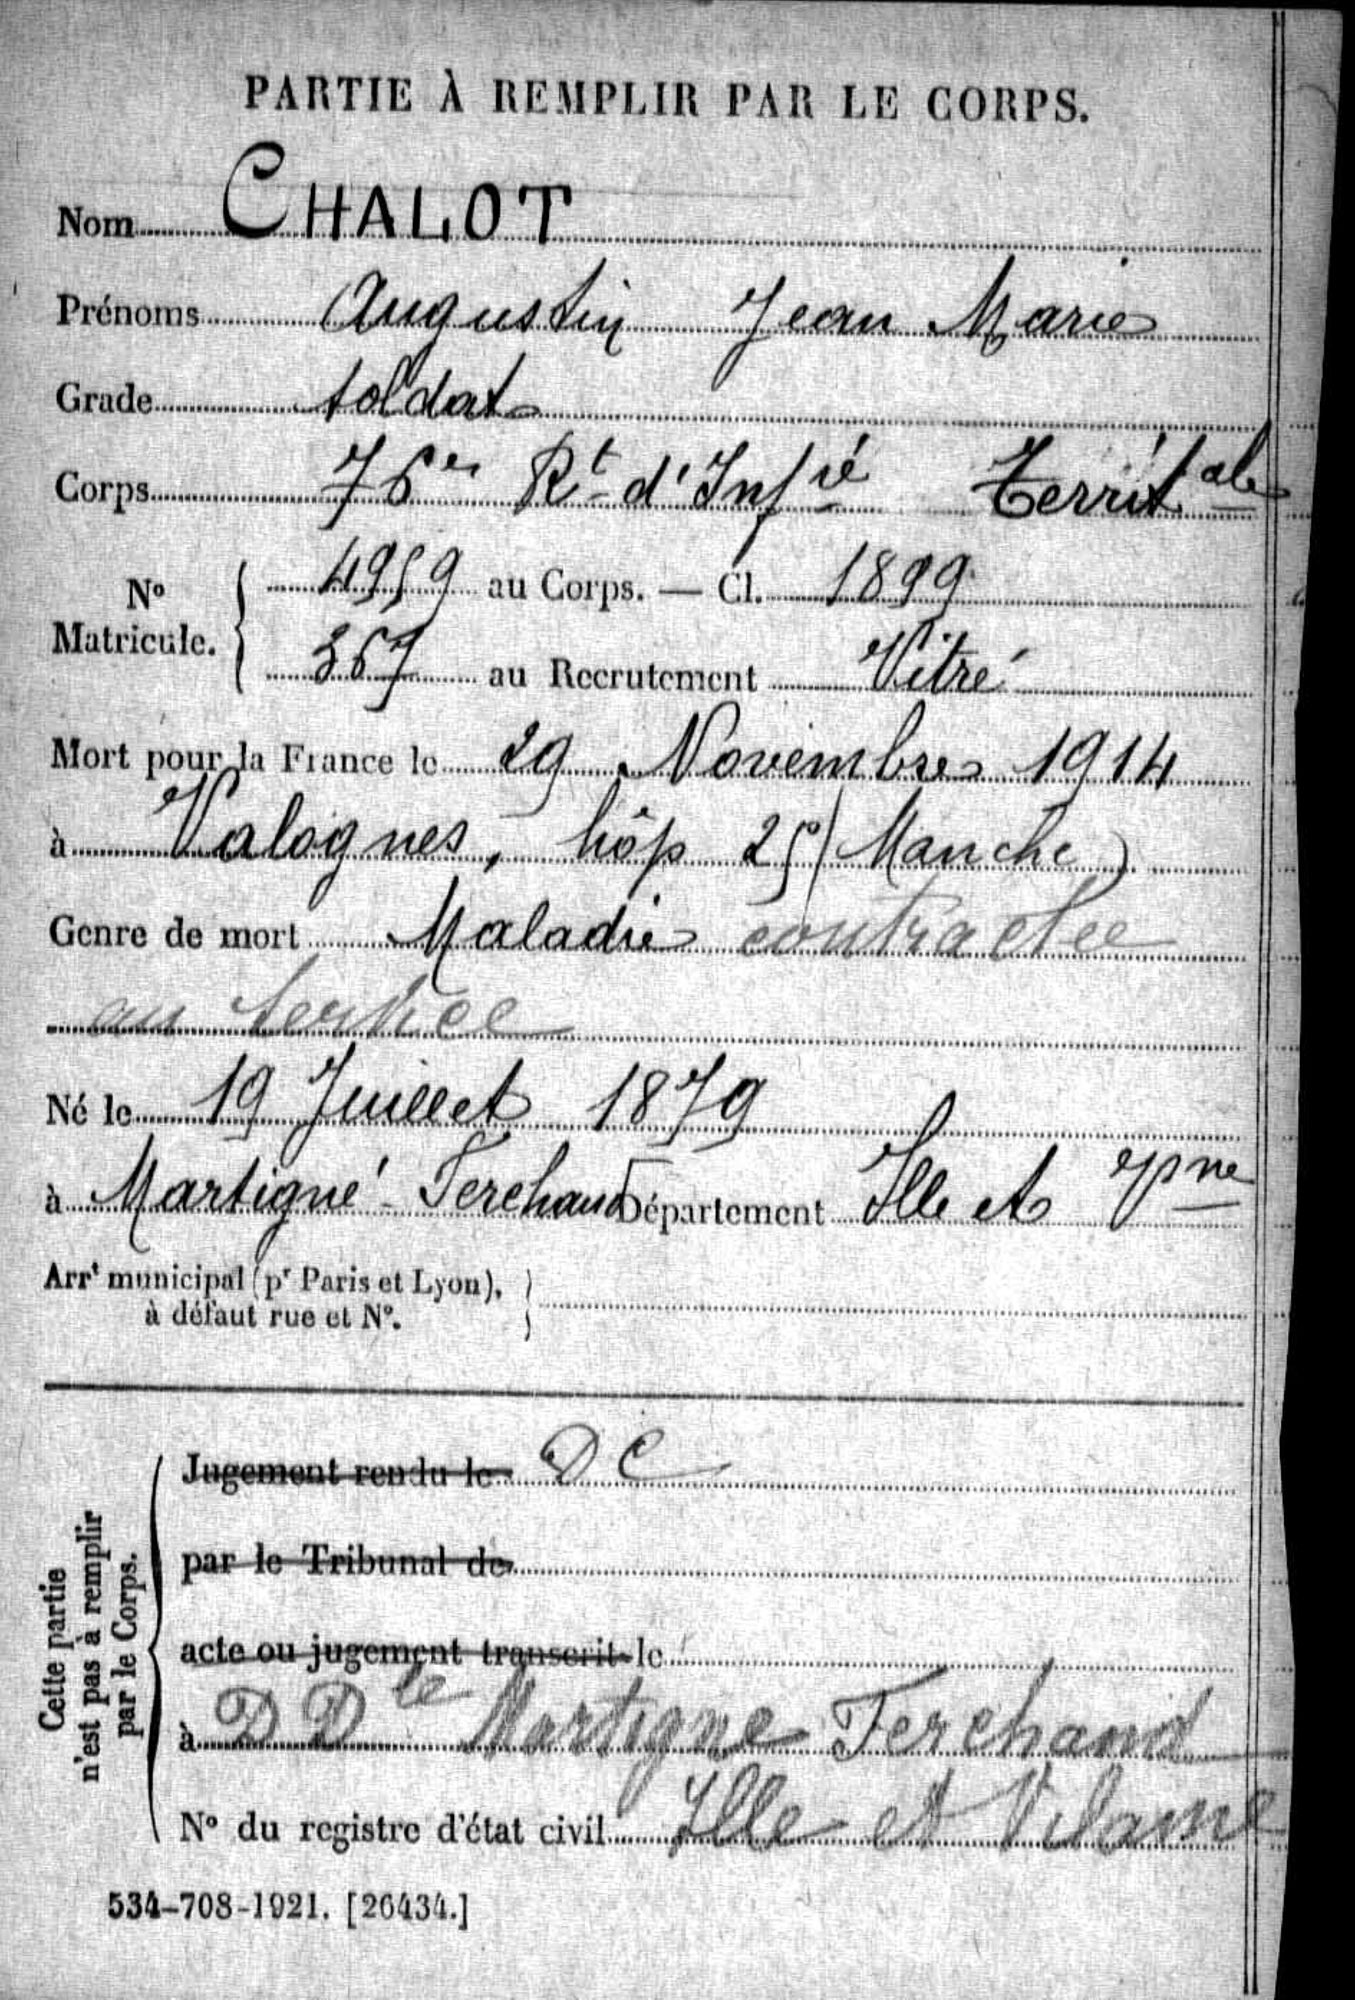 PARTIE À REMPLIR PAR LE CORPS.
Nom CHALOT
Prénoms Augustin Jean Marie
Grade soldat
Corps 76e Rt d'Infie Territale
No Matricule. 4959 au Corps. — Cl. 1899
367 au Recrutement Vitré
Mort pour la France le 29 Novembre 1914
à Valognes, hôp 25 (Manche)
Genre de mort Maladie contractée
au service
Né le 19 Juillet 1879
à Martigné-Ferchaud Département Ille et Vne
Arrt municipal (pr Paris et Lyon),
à défaut rue et No.
Cette partie
n'est pas à remplir
par le Corps.
Jugement rendu le DC
par le Tribunal de
acte ou jugement transcrit le
à DDle Martigne Ferchaud
No du registre d'état civil Ille et Vilaine
534-708-1921. [26434.]